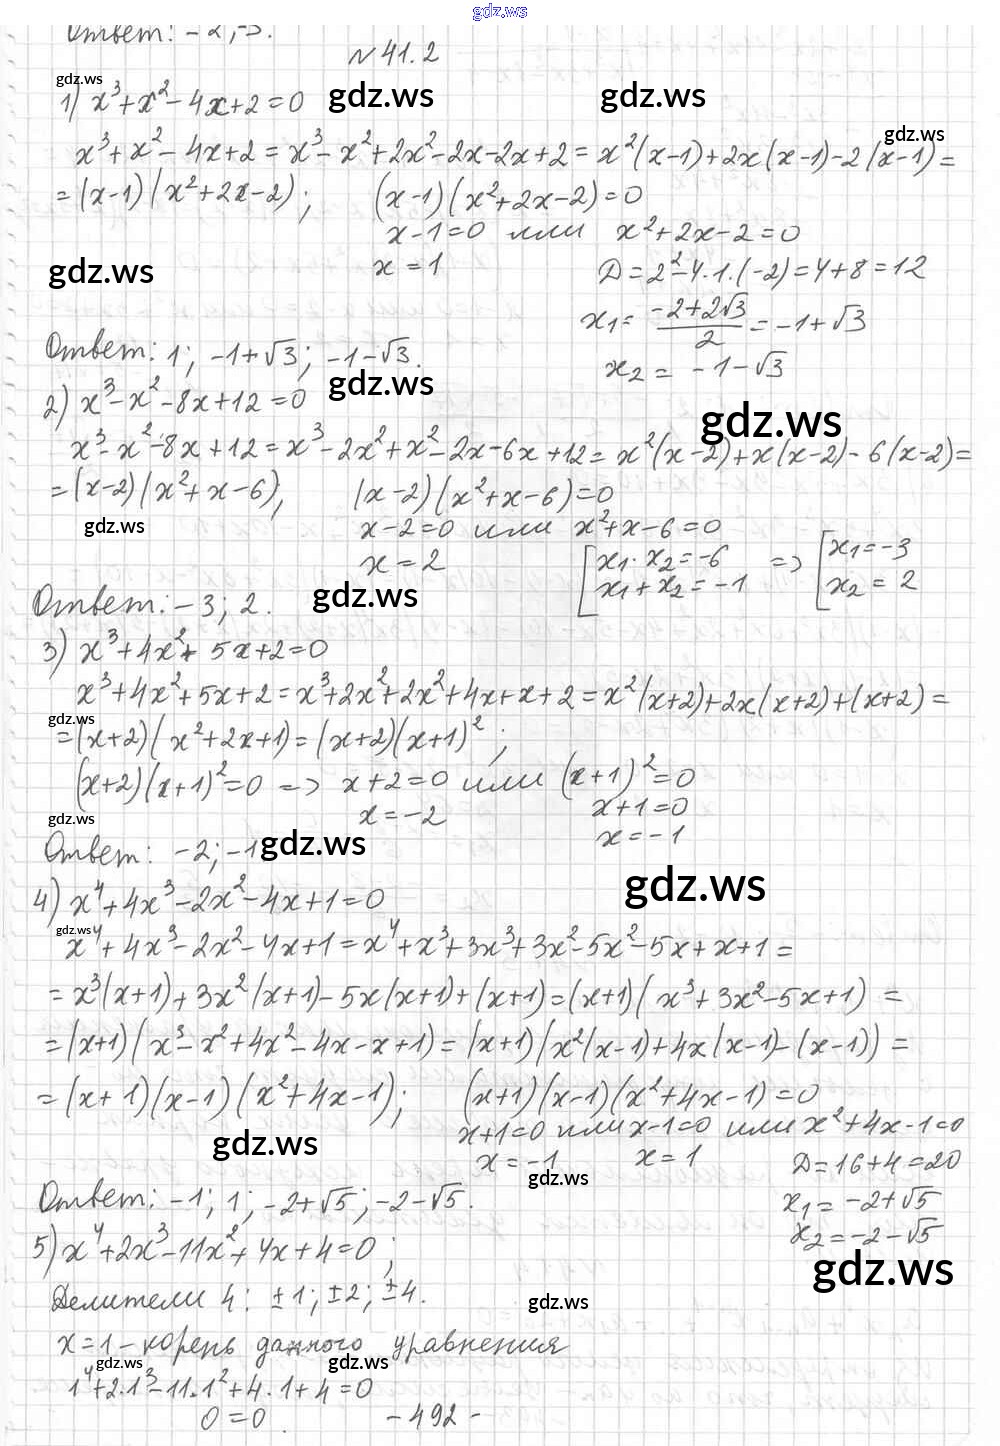 gdz.ws
Ответ: -2; -3.
№41.2
gdz.ws
1) x³+x²-4x+2=0 gdz.ws gdz.ws
gdz.ws
x³+x²-4x+2=x³-x²+2x²-2x-2x+2=x²(x-1)+2x(x-1)-2(x-1)=
=(x-1)(x²+2x-2); (x-1)(x²+2x-2)=0
x-1=0 или x²+2x-2=0
gdz.ws x=1 D=2²-4·1·(-2)=4+8=12
x₁=(-2+2√3)/2=-1+√3
Ответ: 1; -1+√3; -1-√3. x₂=-1-√3
gdz.ws
2) x³-x²-8x+12=0
gdz.ws
x³-x²-8x+12=x³-2x²+x²-2x-6x+12=x²(x-2)+x(x-2)-6(x-2)=
=(x-2)(x²+x-6); (x-2)(x²+x-6)=0
gdz.ws x-2=0 или x²+x-6=0
x=2 [x₁·x₂=-6 => [x₁=-3
x₁+x₂=-1 x₂=2
Ответ: -3; 2. gdz.ws
3) x³+4x²+5x+2=0
x³+4x²+5x+2=x³+2x²+2x²+4x+x+2=x²(x+2)+2x(x+2)+(x+2)=
gdz.ws
=(x+2)(x²+2x+1)=(x+2)(x+1)²;
(x+2)(x+1)²=0 => x+2=0 или (x+1)²=0
x=-2 x+1=0
gdz.ws
x=-1
Ответ: -2; -1 gdz.ws
gdz.ws
4) x⁴+4x³-2x²-4x+1=0
gdz.ws
x⁴+4x³-2x²-4x+1=x⁴+x³+3x³+3x²-5x²-5x+x+1=
=x³(x+1)+3x²(x+1)-5x(x+1)+(x+1)=(x+1)(x³+3x²-5x+1)=
=(x+1)(x³-x²+4x²-4x-x+1)=(x+1)(x²(x-1)+4x(x-1)-(x-1))=
=(x+1)(x-1)(x²+4x-1); (x+1)(x-1)(x²+4x-1)=0
x+1=0 или x-1=0 или x²+4x-1=0
gdz.ws
x=-1 x=1 D=16+4=20
gdz.ws
Ответ: -1; 1; -2+√5; -2-√5. x₁=-2+√5
x₂=-2-√5
5) x⁴+2x³-11x²+4x+4=0;
gdz.ws
Делители 4: ±1; ±2; ±4. gdz.ws
x=1-корень данного уравнения
gdz.ws gdz.ws
1⁴+2·1³-11·1²+4·1+4=0
0=0. -492-